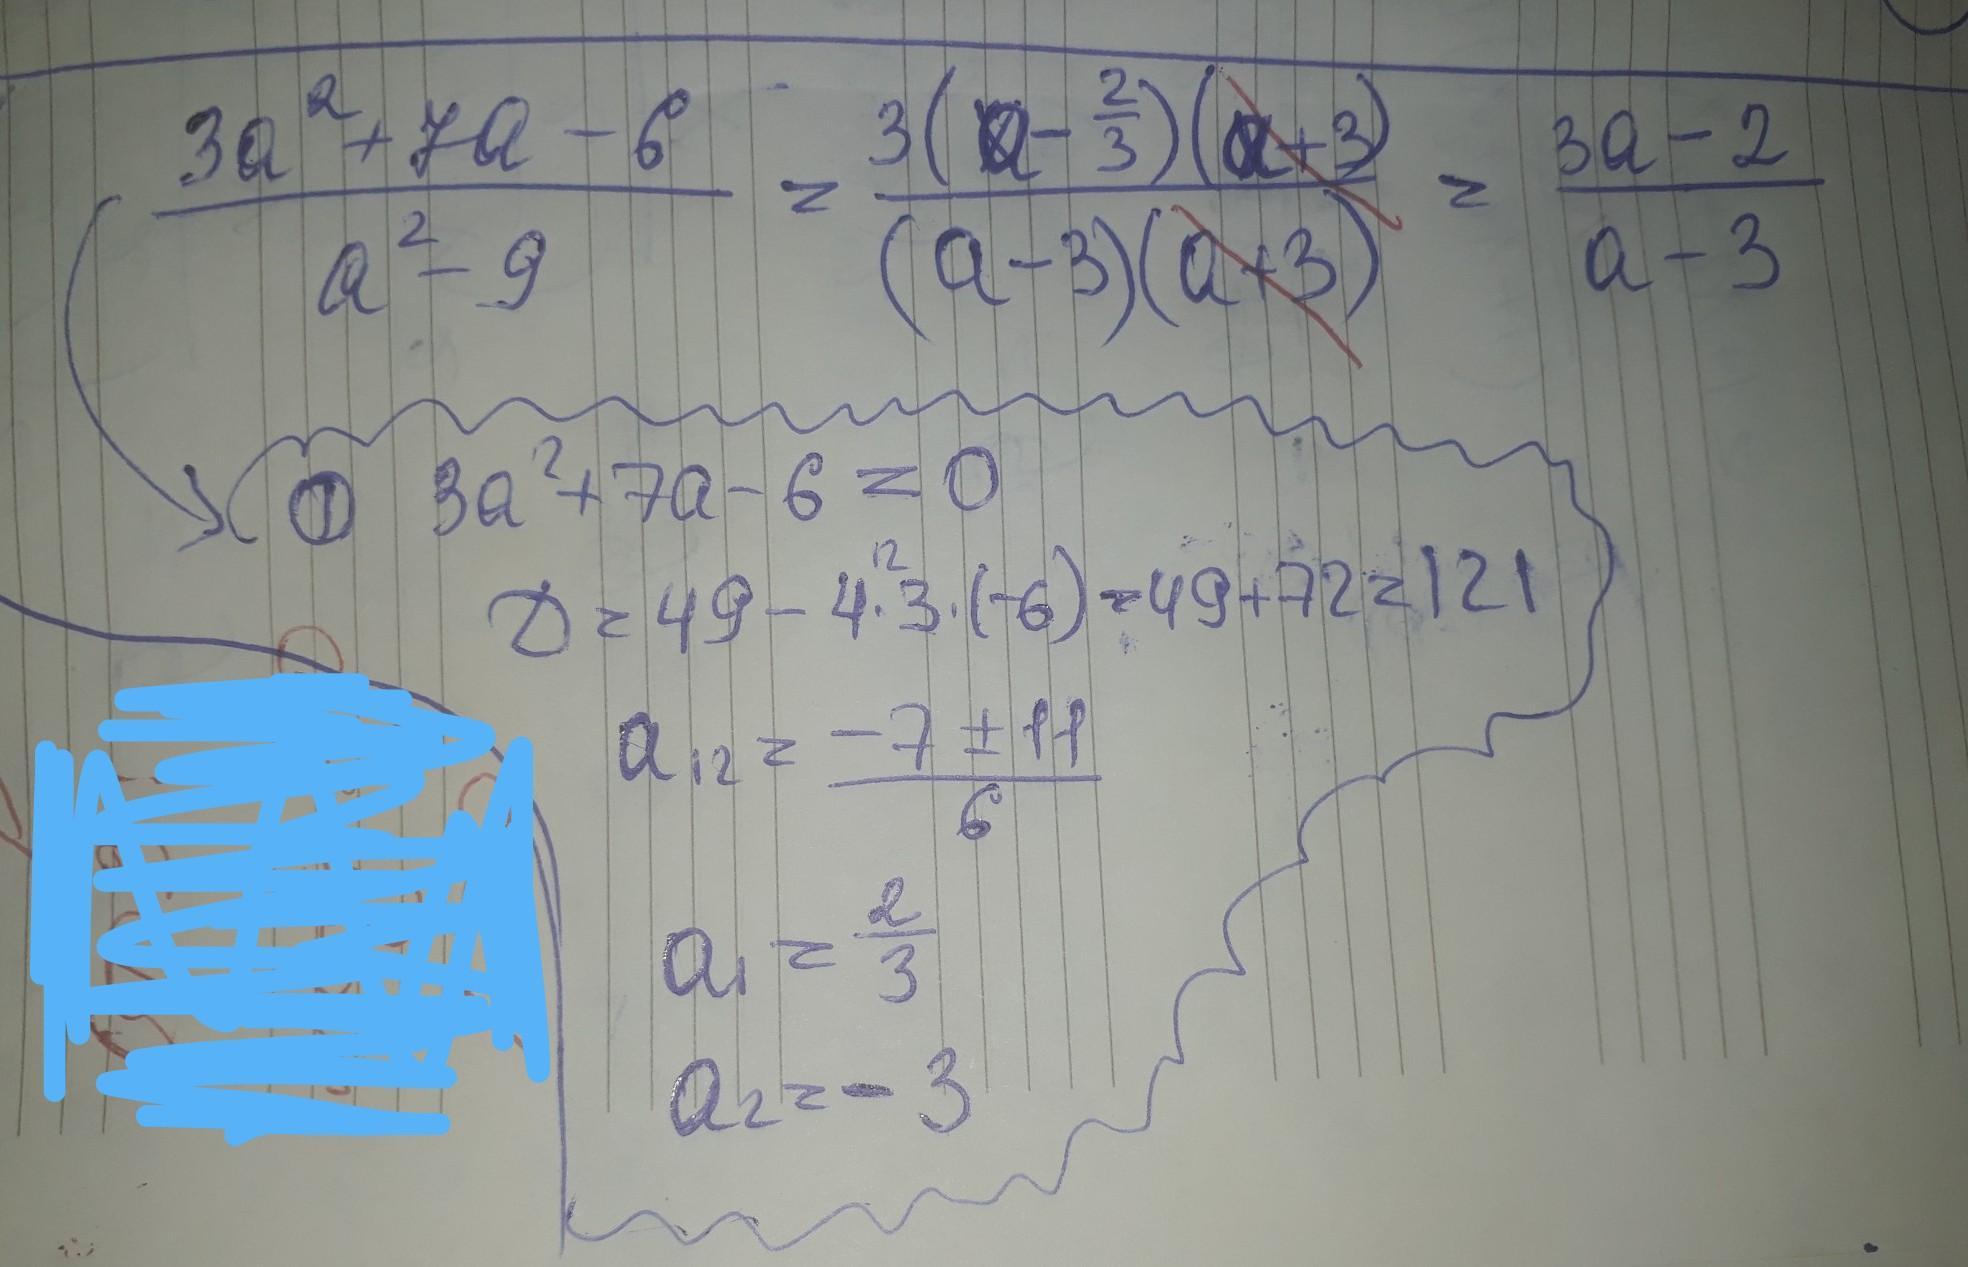 (3a² + 7a - 6)/(a² - 9) = (3(a - 2/3)(a + 3))/((a - 3)(a + 3)) = (3a - 2)/(a - 3)
① 3a² + 7a - 6 = 0
12
D = 49 - 4·3·(-6) = 49 + 72 = 121
a₁₂ = (-7 ± 11)/6
a₁ = 2/3
a₂ = -3